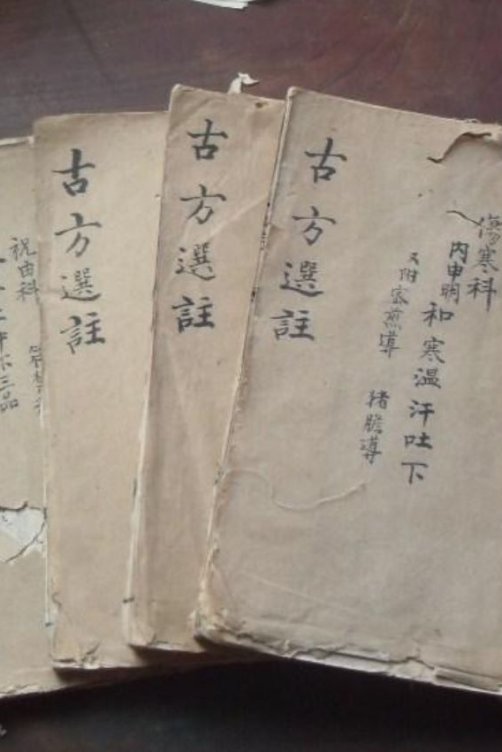 傷寒科
内申明
和寒温汗吐下
又附蜜煎導
猪膽導
古方選註
古方選註
古方選註
祝由科